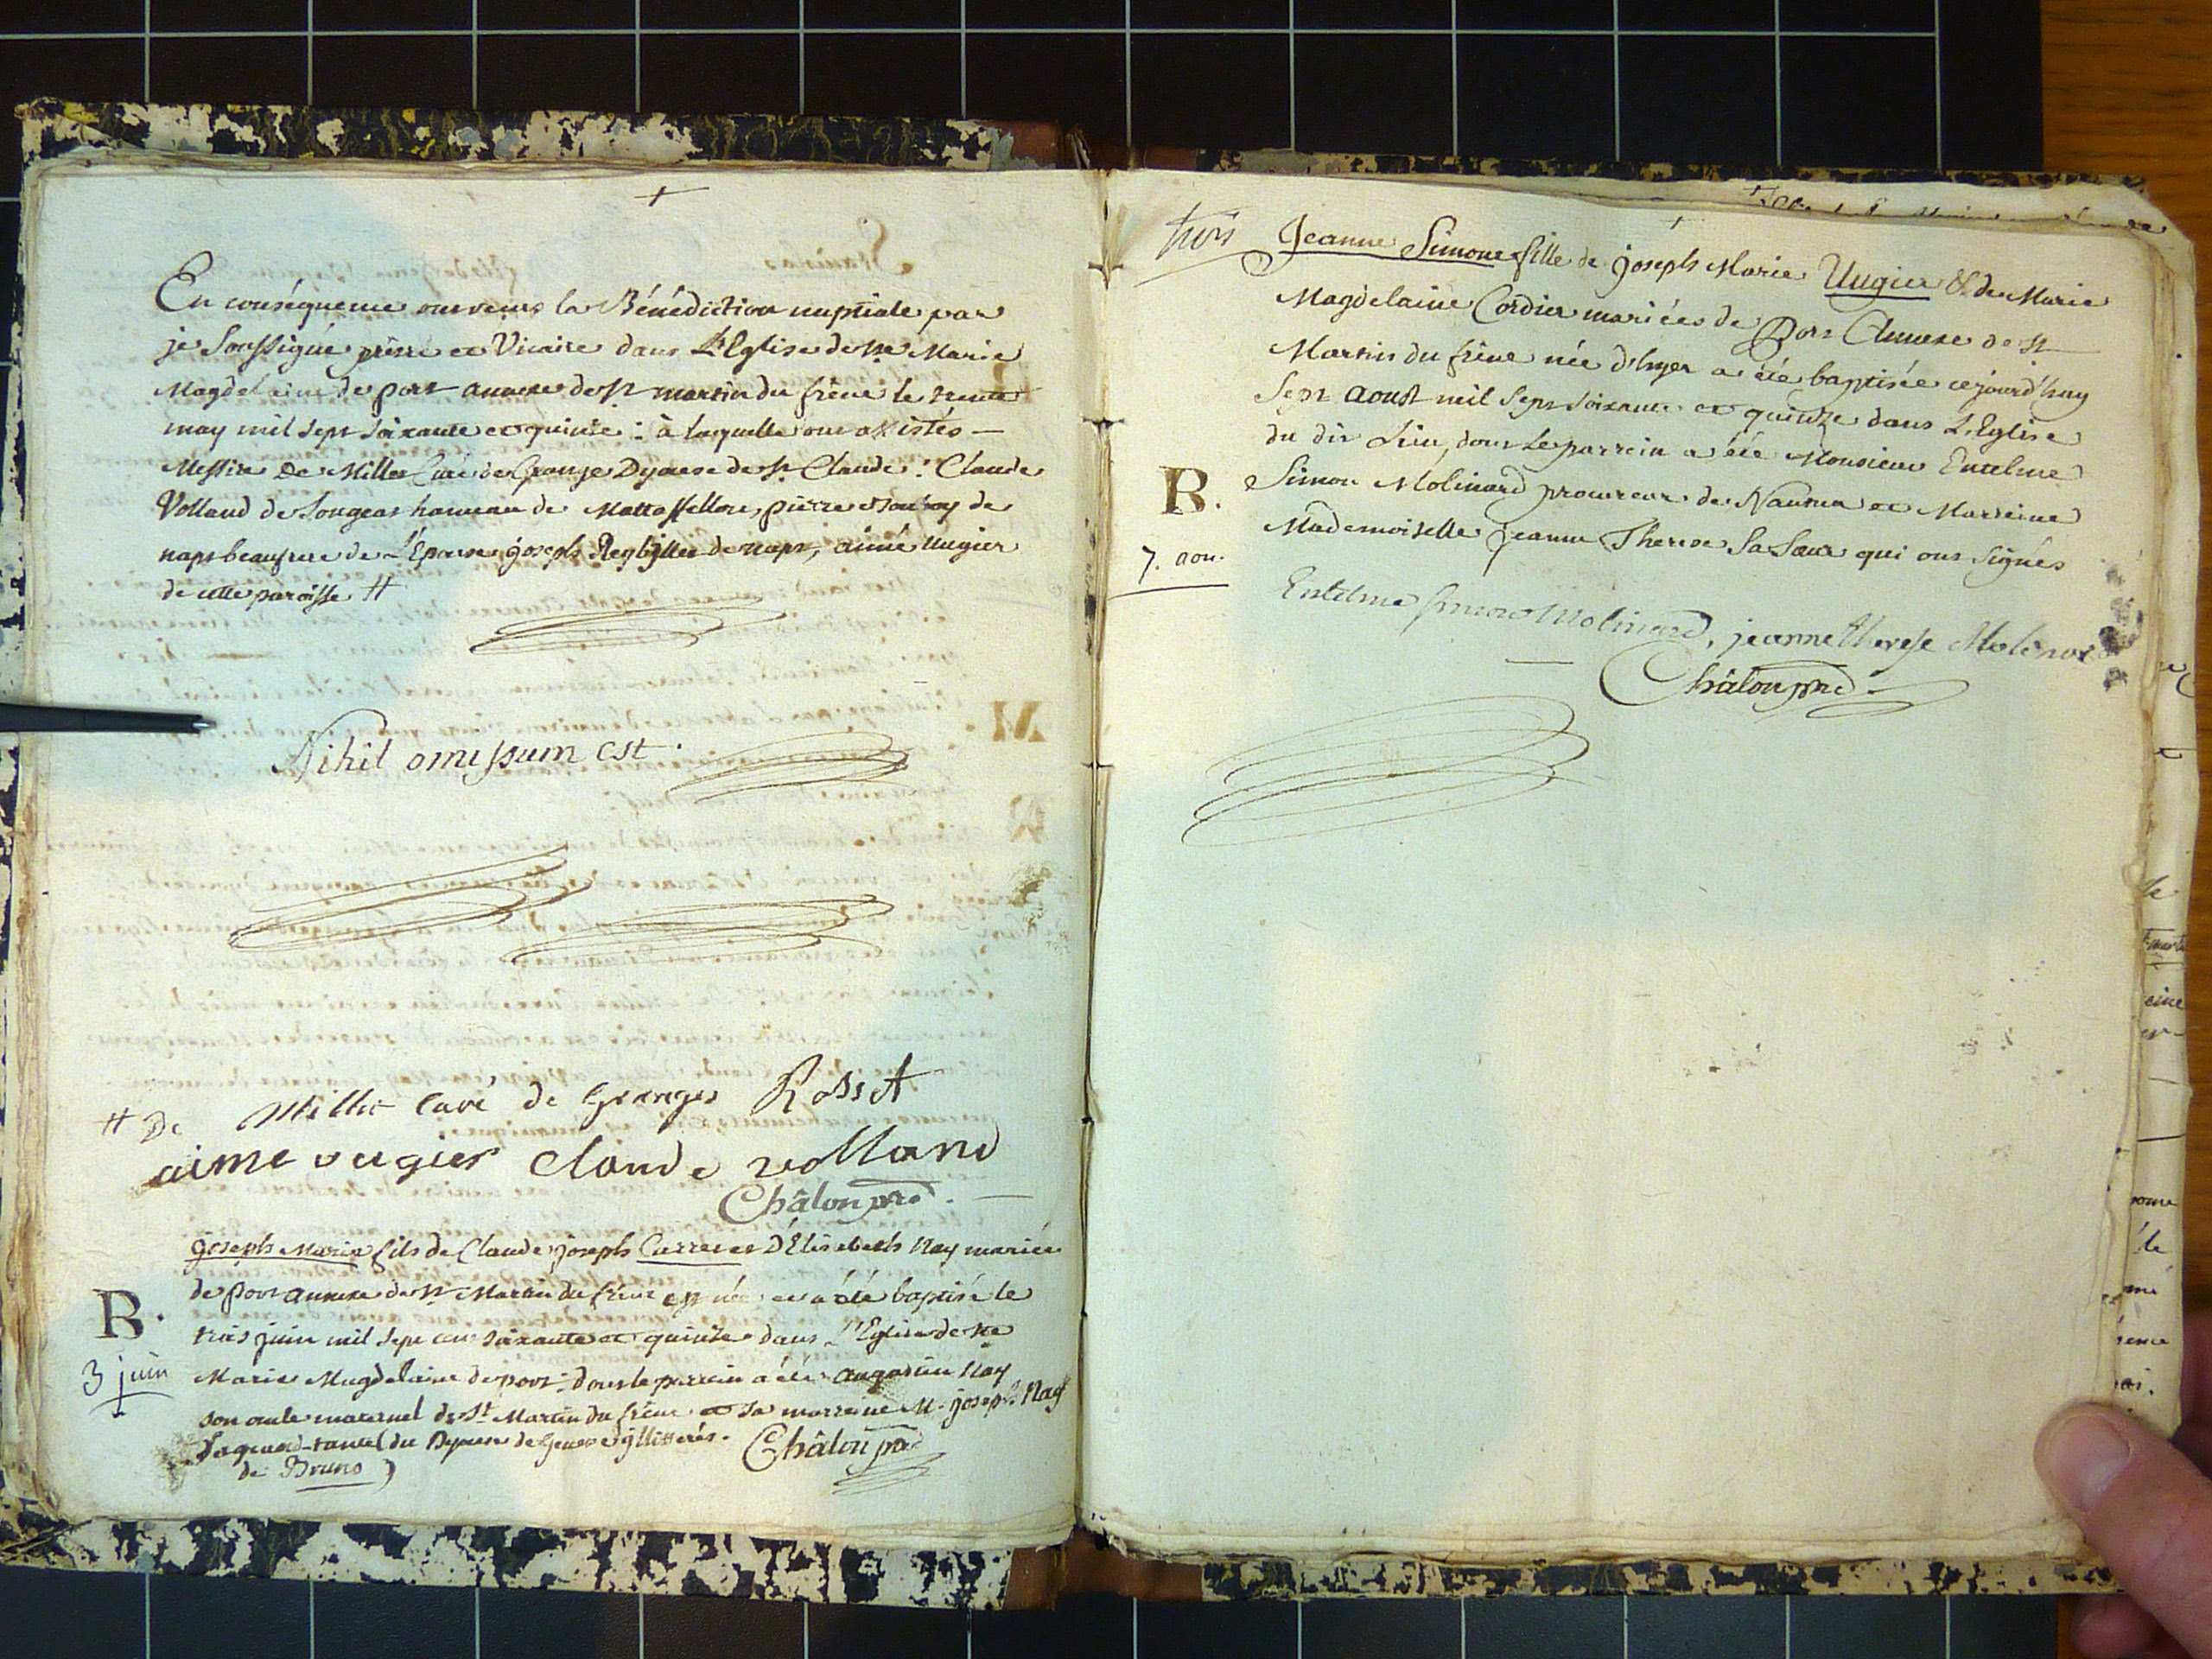 En conséquence ont reçus la Bénédiction nuptiale par
je soussigné prêtre et Vicaire dans L'Eglise de ste Marie
Magdelaine de port annexe de st martin du frêne le trente
may mil sept soixante et quinze : à laquelle ont assistés —
Messire De Millet Curé de Grange Dyocese de st. Claude : Claude
Volland de Songeas hameau de Mattafellon, pierre de
napt beaufrere de L'Epouse joseph de napt, aimé Uugier
de cette paroisse #
Nihil omissum est.
# De Millet Curé de Granges Rosset
aime uugier Claude volland
Châlon ptre.
joseph Marie fils de Claude joseph Carrer et D'Elisabeth Nay mariés
de port annexe de st Martin du frêne est né et a été baptisé le
B.
trois juin mil sept cent soixante et quinze dans L'Eglise de ste
3 juin
Marie Magdelaine de port : dont le parrein a été augustin Nay
son oncle maternel de St Martin du frêne et sa marreine M. joseph Nay
sa grand-tante (du Dyocese de Geneve illitterés. Châlon ptre
de Bruno)
trois
Jeanne Simone fille de joseph Marie Uugier & de Marie
Magdelaine Cordier mariés de Port Annexe de st
Martin du frêne née d'hyer a été baptisée cejourd'huy
sept aoust mil sept soixante et quinze dans L'Eglise
du dit Lieu, dont Le parrein a été Monsieur Entelme
B.
Simon Molinard procureur de Nantua et Marreine
Mademoiselle jeanne Therese sa sœur qui ont signés
7. aou.
Entelme simon Molinard, jeanne therese Molinard
Châlon ptre.